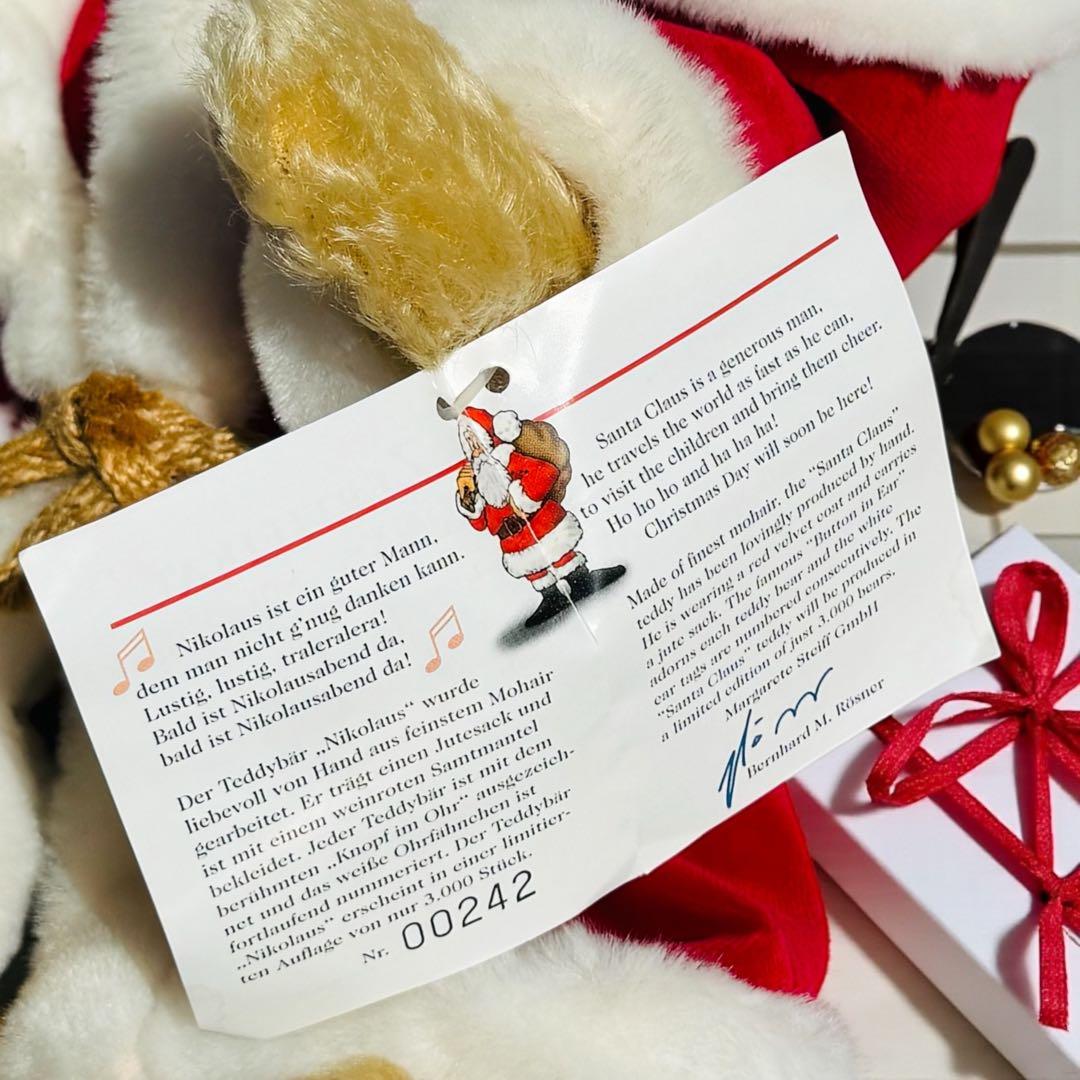 Nikolaus ist ein guter Mann,
dem man nicht g'nug danken kann.
Lustig, lustig, traleralera!
Bald ist Nikolausabend da,
bald ist Nikolausabend da!
Der Teddybär „Nikolaus“ wurde
liebevoll von Hand aus feinstem Mohair
gearbeitet. Er trägt einen Jutesack und
ist mit einem weinroten Samtmantel
bekleidet. Jeder Teddybär ist mit dem
berühmten „Knopf im Ohr“ ausgezeich-
net und das weiße Ohrfähnchen ist
fortlaufend nummeriert. Der Teddybär
„Nikolaus“ erscheint in einer limitier-
ten Auflage von nur 3.000 Stück.
Nr. 00242
Santa Claus is a generous man,
he travels the world as fast as he can,
to visit the children and bring them cheer.
Ho ho ho and ha ha ha!
Christmas Day will soon be here!
Made of finest mohair, the “Santa Claus”
teddy has been lovingly produced by hand.
He is wearing a red velvet coat and carries
a jute sack. The famous “Button in Ear”
adorns each teddy bear and the white
ear tags are numbered consecutively. The
“Santa Claus” teddy will be produced in
a limited edition of just 3,000 bears.
Margarete Steiff GmbH
Bernhard M. Rösner